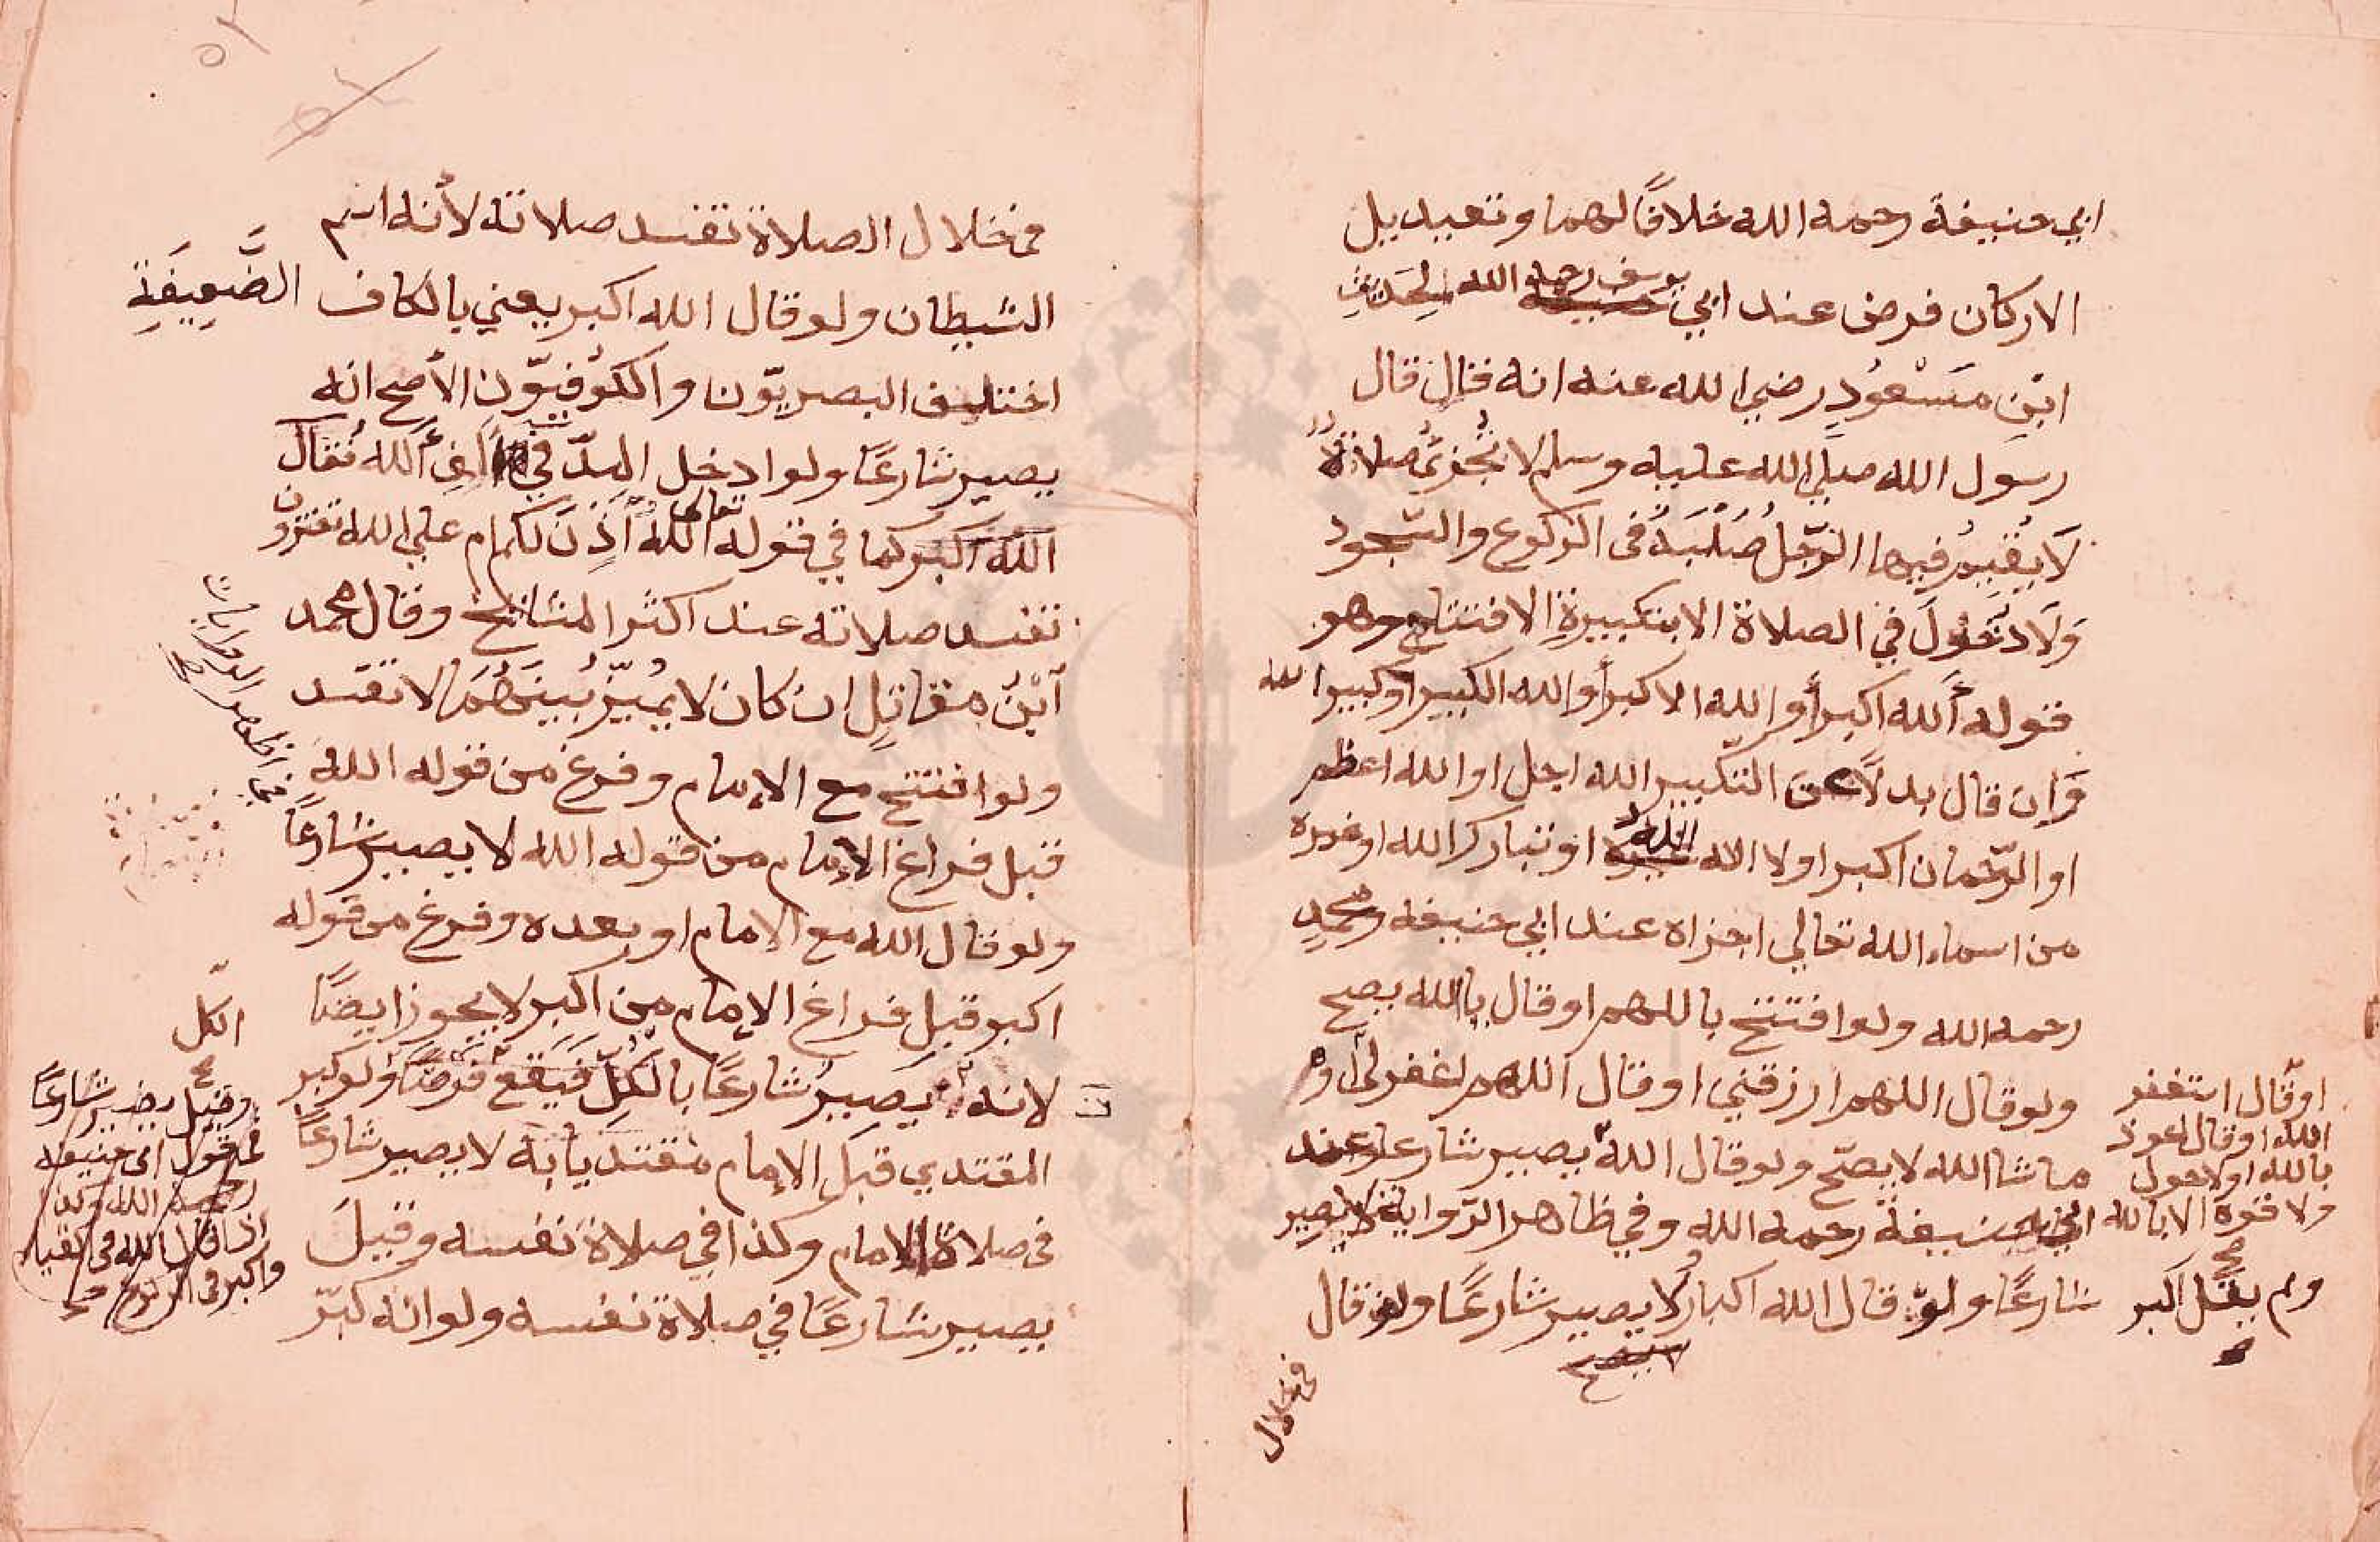 ابي حنيفة رحمه الله خلافًا لهما وتعديل
الاركان فرض عند ابي يوسف رحمه الله لِحَديْثِ
ابْنِ مَسْعُوْدٍ رضي الله عنه انه قال قال
رسول الله صلي الله عليه وسلم لا تُجْزِئُ صلاةٌ
لَا يُقِيْمُ فيها الرّجل صُلْبَهُ فى الرّكوع والسّجود
وَلَا دُخُوْلَ فِي الصلاة الا بتكبيرةِ الافتتاح وهو
قوله أَلله اكبر أو الله الاكبر أو الله الكبير او كبير الله
وَاِن قال بدلًا عن التكبير الله اجل او الله اعظم
او الرّحمان اكبر او لا اله الا الله او تبارك الله او غيره
من اسماء الله تعالي اجزاه عند ابي حنيفه ومحمدٍ
رحمه الله ولو افتتح باللهم او قال يا الله يصح
ولو قال اللهم ارزقني او قال اللهم اغفر لي أو
او قال استغفر
الله او قال اعوذ
بالله او لا حول
ولا قوة الا بالله
صح
ما شا الله لا يصحّ ولو قال اللهُ يصير شارعا عند
ابي حنيفة رحمه الله وفي ظاهر الرّواية لا يصير
ولم يقل اكبر
شارعًا ولو قال الله اكبار لا يصير شارعًا ولو قال
فى خلال
فى خلال الصلاة تفسد صلاته لأنه اسم
الشيطان ولو قال الله اكبر يعني بالكاف الضَّعِيفَةِ
اختلف البصريّون والكُوْفِيّون الأصح انه
يصير شارعًا ولو ادخل المدّ في أَلله فقال
الله اكبر كما في قوله تعالى اللهُ أَذِنَ لكم ام علي الله تفترون
تفسد صلاته عند اكثر المشائخ وقال محمد
اَبْنُ مقاتلٍ ان كان لا يميّز بينهُما لا تفسد
ولو افتتح مع الإمام وفرغ من قوله اللهُ
في اظهر الروايات
صح
قبل فراغ الإمام من قوله الله لا يصير شارعًا
ولو قال الله مع الإمام او بعده وفرغ من قوله
اكبر قبل فراغ الإمام من اكبر لا يجوز ايضًا
الكل
لانه يَصِيْرُ شارعًا بالكلِّ فَيَقَعُ فرضًا ولو كبر
المقتدي قبل الإمام مقتديا به لا يصير شارعًا
فى صلاة الإمام وكذا في صلاة نفسه وقيلَ
يصير شارعًا في صلاة نفسه ولو انه كبّر
وقيل يصير شارعًا
فى قول ابى حنيفه
رحمه الله وكذا
اذا قال الله فى القيام
واكبر فى الركوع صح